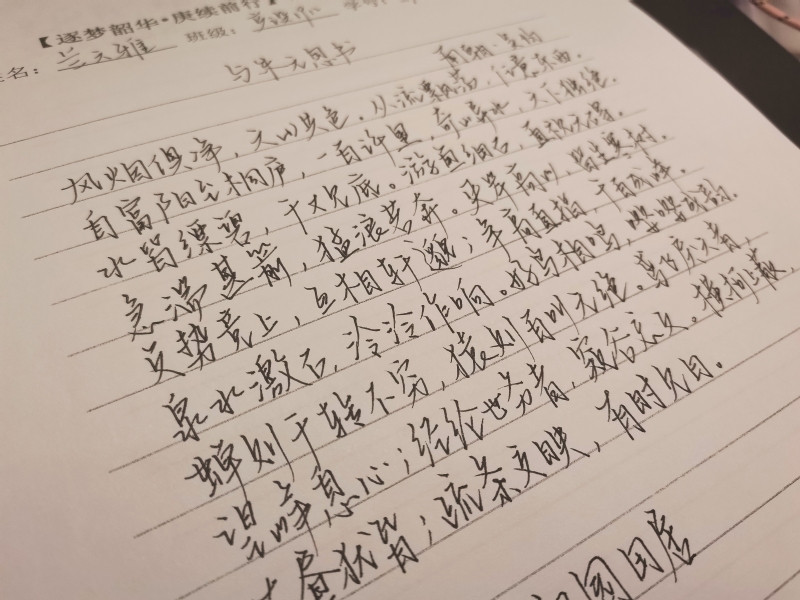 【逐梦韶华·赓续前行】
名: 兰文雅 班级:
与朱元思书
南朝·吴均
风烟俱净,天山共色。从流飘荡,任意东西。
自富阳至桐庐,一百许里,奇山异水,天下独绝。
水皆缥碧,千丈见底。游鱼细石,直视无碍。
急湍甚箭,猛浪若奔。夹岸高山,皆生寒树,
负势竞上,互相轩邈;争高直指,千百成峰。
泉水激石,泠泠作响。好鸟相鸣,嘤嘤成韵。
蝉则千转不穷,猿则百叫无绝。鸢飞戾天者,
望峰息心;经纶世务者,窥谷忘反。横柯上蔽,
在昼犹昏;疏条交映,有时见日。
园田居